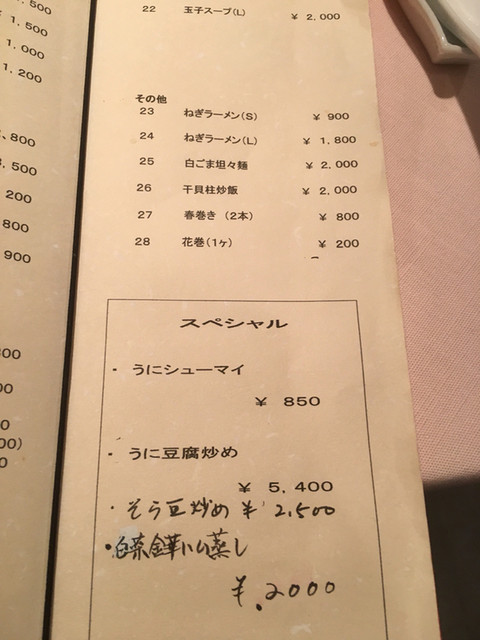 ,500
1,500
1,000
1,200
,800
,500
200
800
900
22 玉子スープ(L) ¥ 2,000
その他
23 ねぎラーメン(S) ¥ 900
24 ねぎラーメン(L) ¥ 1,800
25 白ごま坦々麺 ¥ 2,000
26 干貝柱炒飯 ¥ 2,000
27 春巻き (2本) ¥ 800
28 花巻(1ヶ) ¥ 200
スペシャル
・うにシューマイ
¥ 850
・うに豆腐炒め
¥ 5,400
・そら豆炒め ¥ 2,500
・白菜金華ハム蒸し
¥.2000